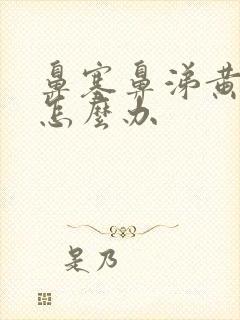 鼻塞鼻涕黄
怎麼办
是乃